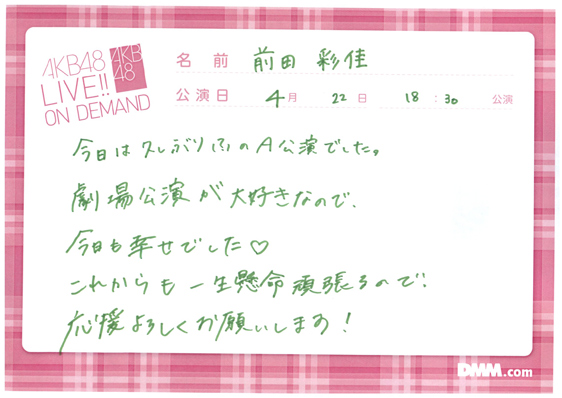 AKB48
LIVE!!
ON DEMAND
AKB
48
名前 前田 彩佳
公演日 4月 22日 18:30 公演
今日は久しぶりのA公演でした。
劇場公演が大好きなので、
今日も幸せでした♡
これからも一生懸命頑張るので、
応援よろしくお願いします!
DMM.com